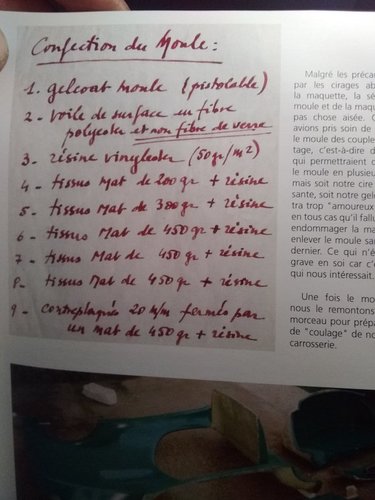 Confection du Moule :
1. gelcoat moule (pistolable)
2 - voile de surface en fibre
polyester et non fibre de verre
3. résine vinylester (50gr/m2)
4 - tissus Mat de 200 gr + résine
5 - tissus Mat de 300 gr + résine
6 - tissus Mat de 450 gr + résine
7 - tissus Mat de 450 gr + résine
8 - tissus Mat de 450 gr + résine
9 - contreplaqués 20 m/m fermés par
un mat de 450 gr + résine
Malgré les préca
par les cirages ab
la maquette, la sé
moule et de la maqu
pas chose aisée. C
avions pris soin de
le moule des couples
tage, c'est-à-dire d
qui permettraient d
le moule en plusieu
mais soit notre cire
sante, soit notre gelc
tra trop "amoureux
en tous cas qu'il fallu
endommager la ma
enlever le moule sa
dernier. Ce qui n'é
grave en soi car c'é
qui nous intéressait.
Une fois le mo
nous le remontons
morceau pour prépa
de "coulage" de no
carrosserie.